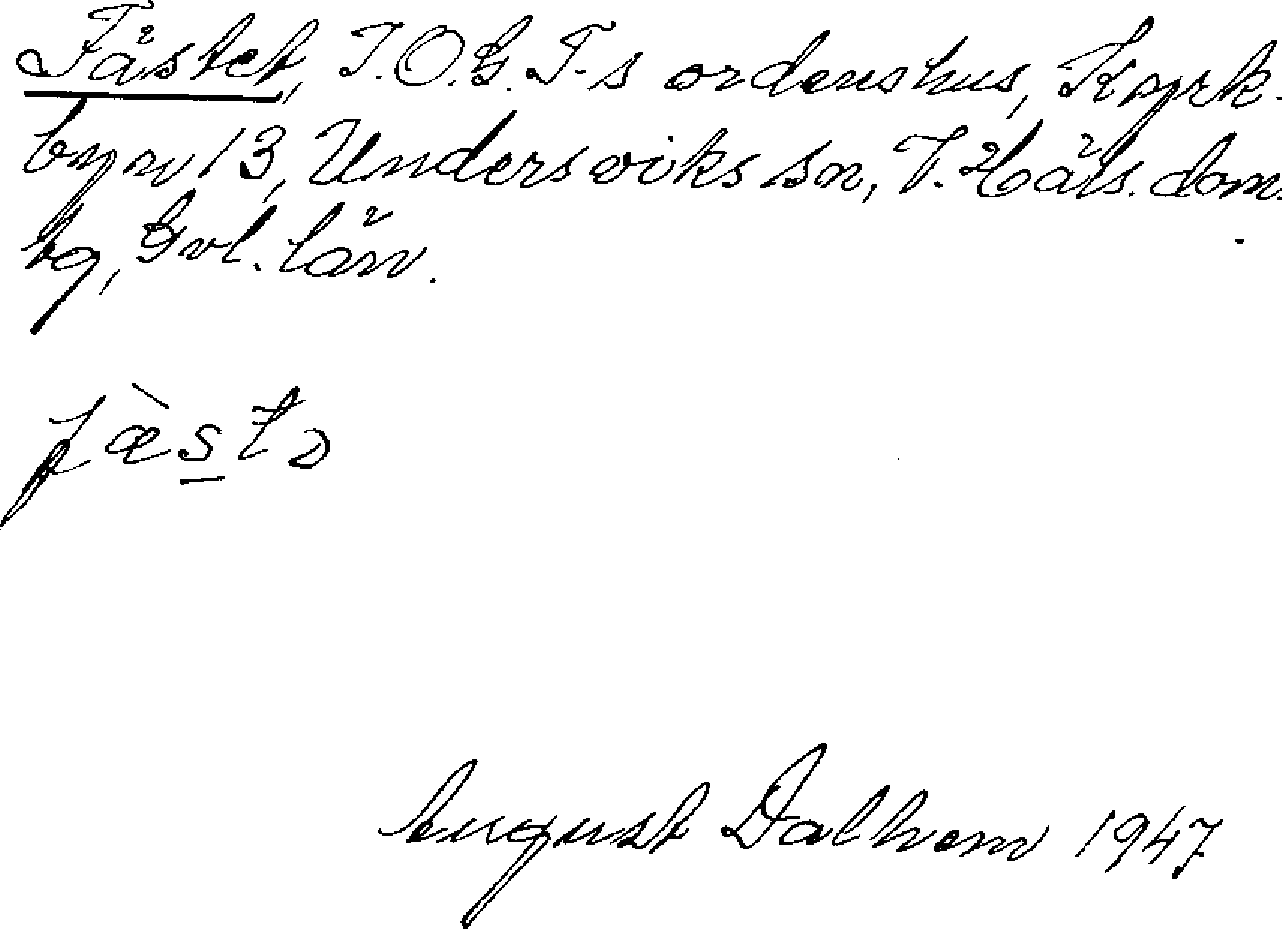 Fästet, I.O.G.T-s ordenshus, Kyrk-
byn 13, Undersviks sn, V. Häls. dom.
sg, Gvl. län.
fæ̀s̲tə
August Dalhem 1947